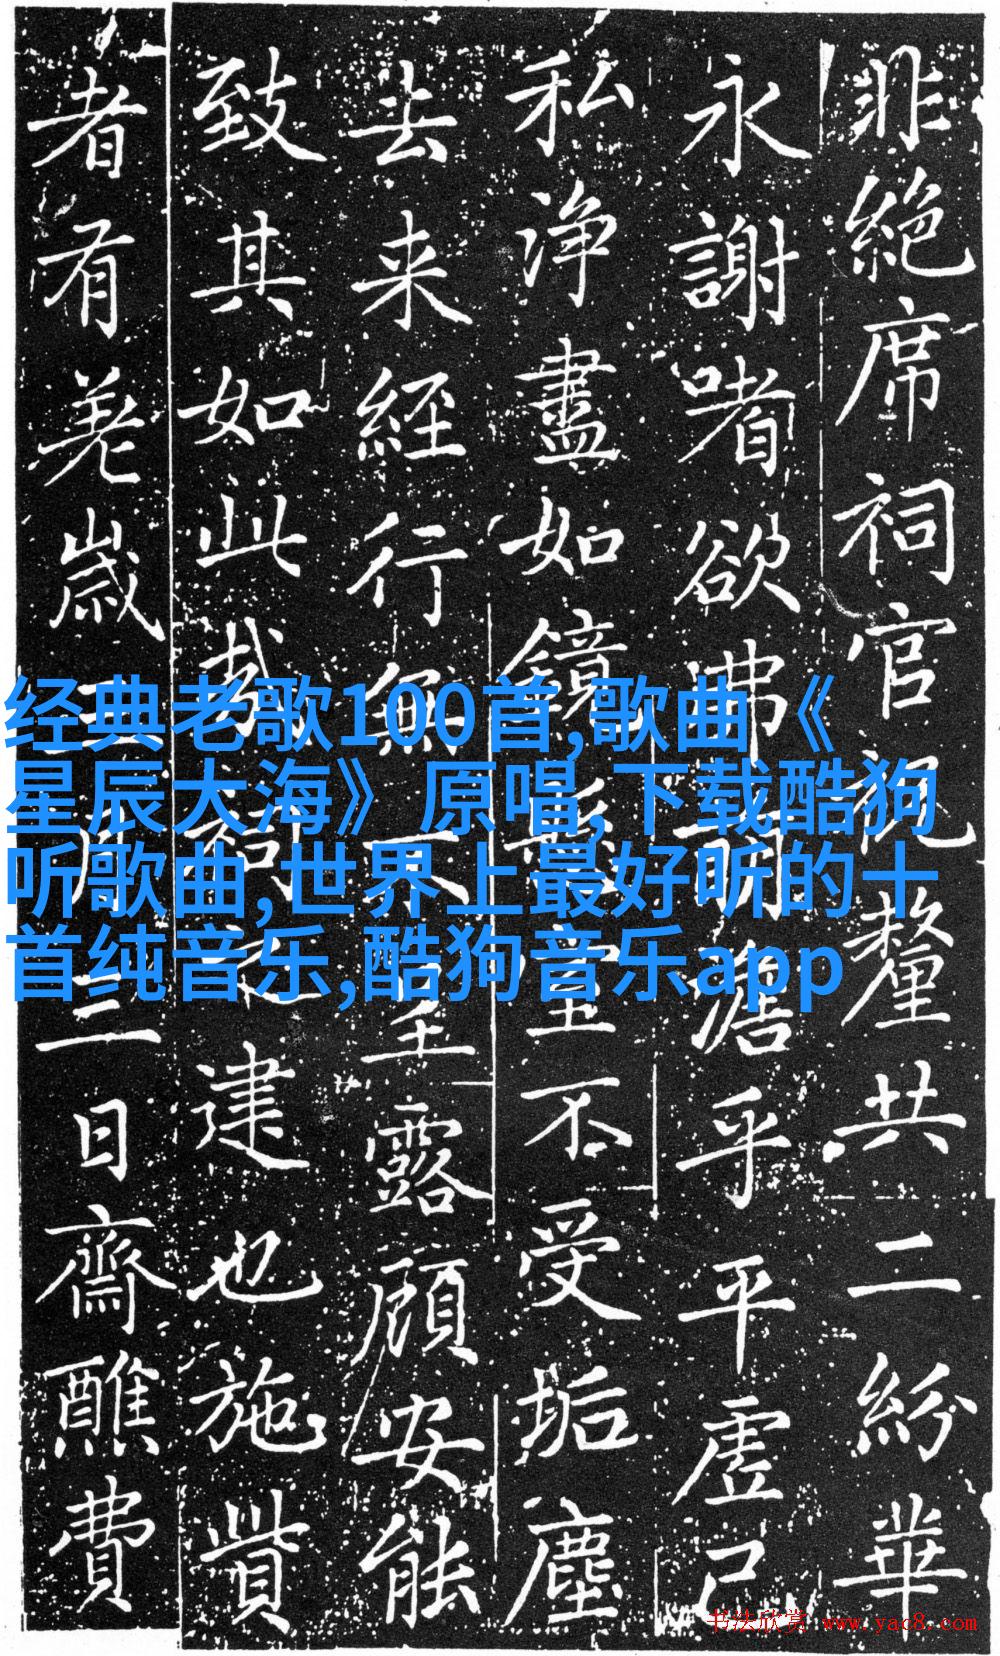 非絶席祠官視釐共二紛華
永謝嗜欲弗萌澹乎平虚己
私浄盡如鏡不受垢塵
去来經行無露顧安能
致其如此哉建也施貲
者有羌歲三月三日齋醮費
经典老歌100首,歌曲《
星辰大海》原唱,下载酷狗
听歌曲,世界上最好听的十
首纯音乐,酷狗音乐app
书法欣赏 www.yac8.com